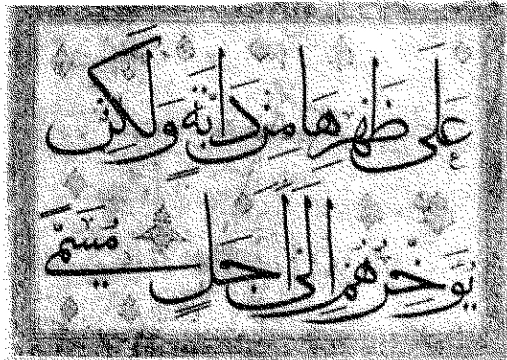 عَلَى ظَهْرِهَا مِن دَابَّةٍ وَلَكِن
يُوَخِّرُهُمْ إِلَى أَجَلٍ مُسَمًّى